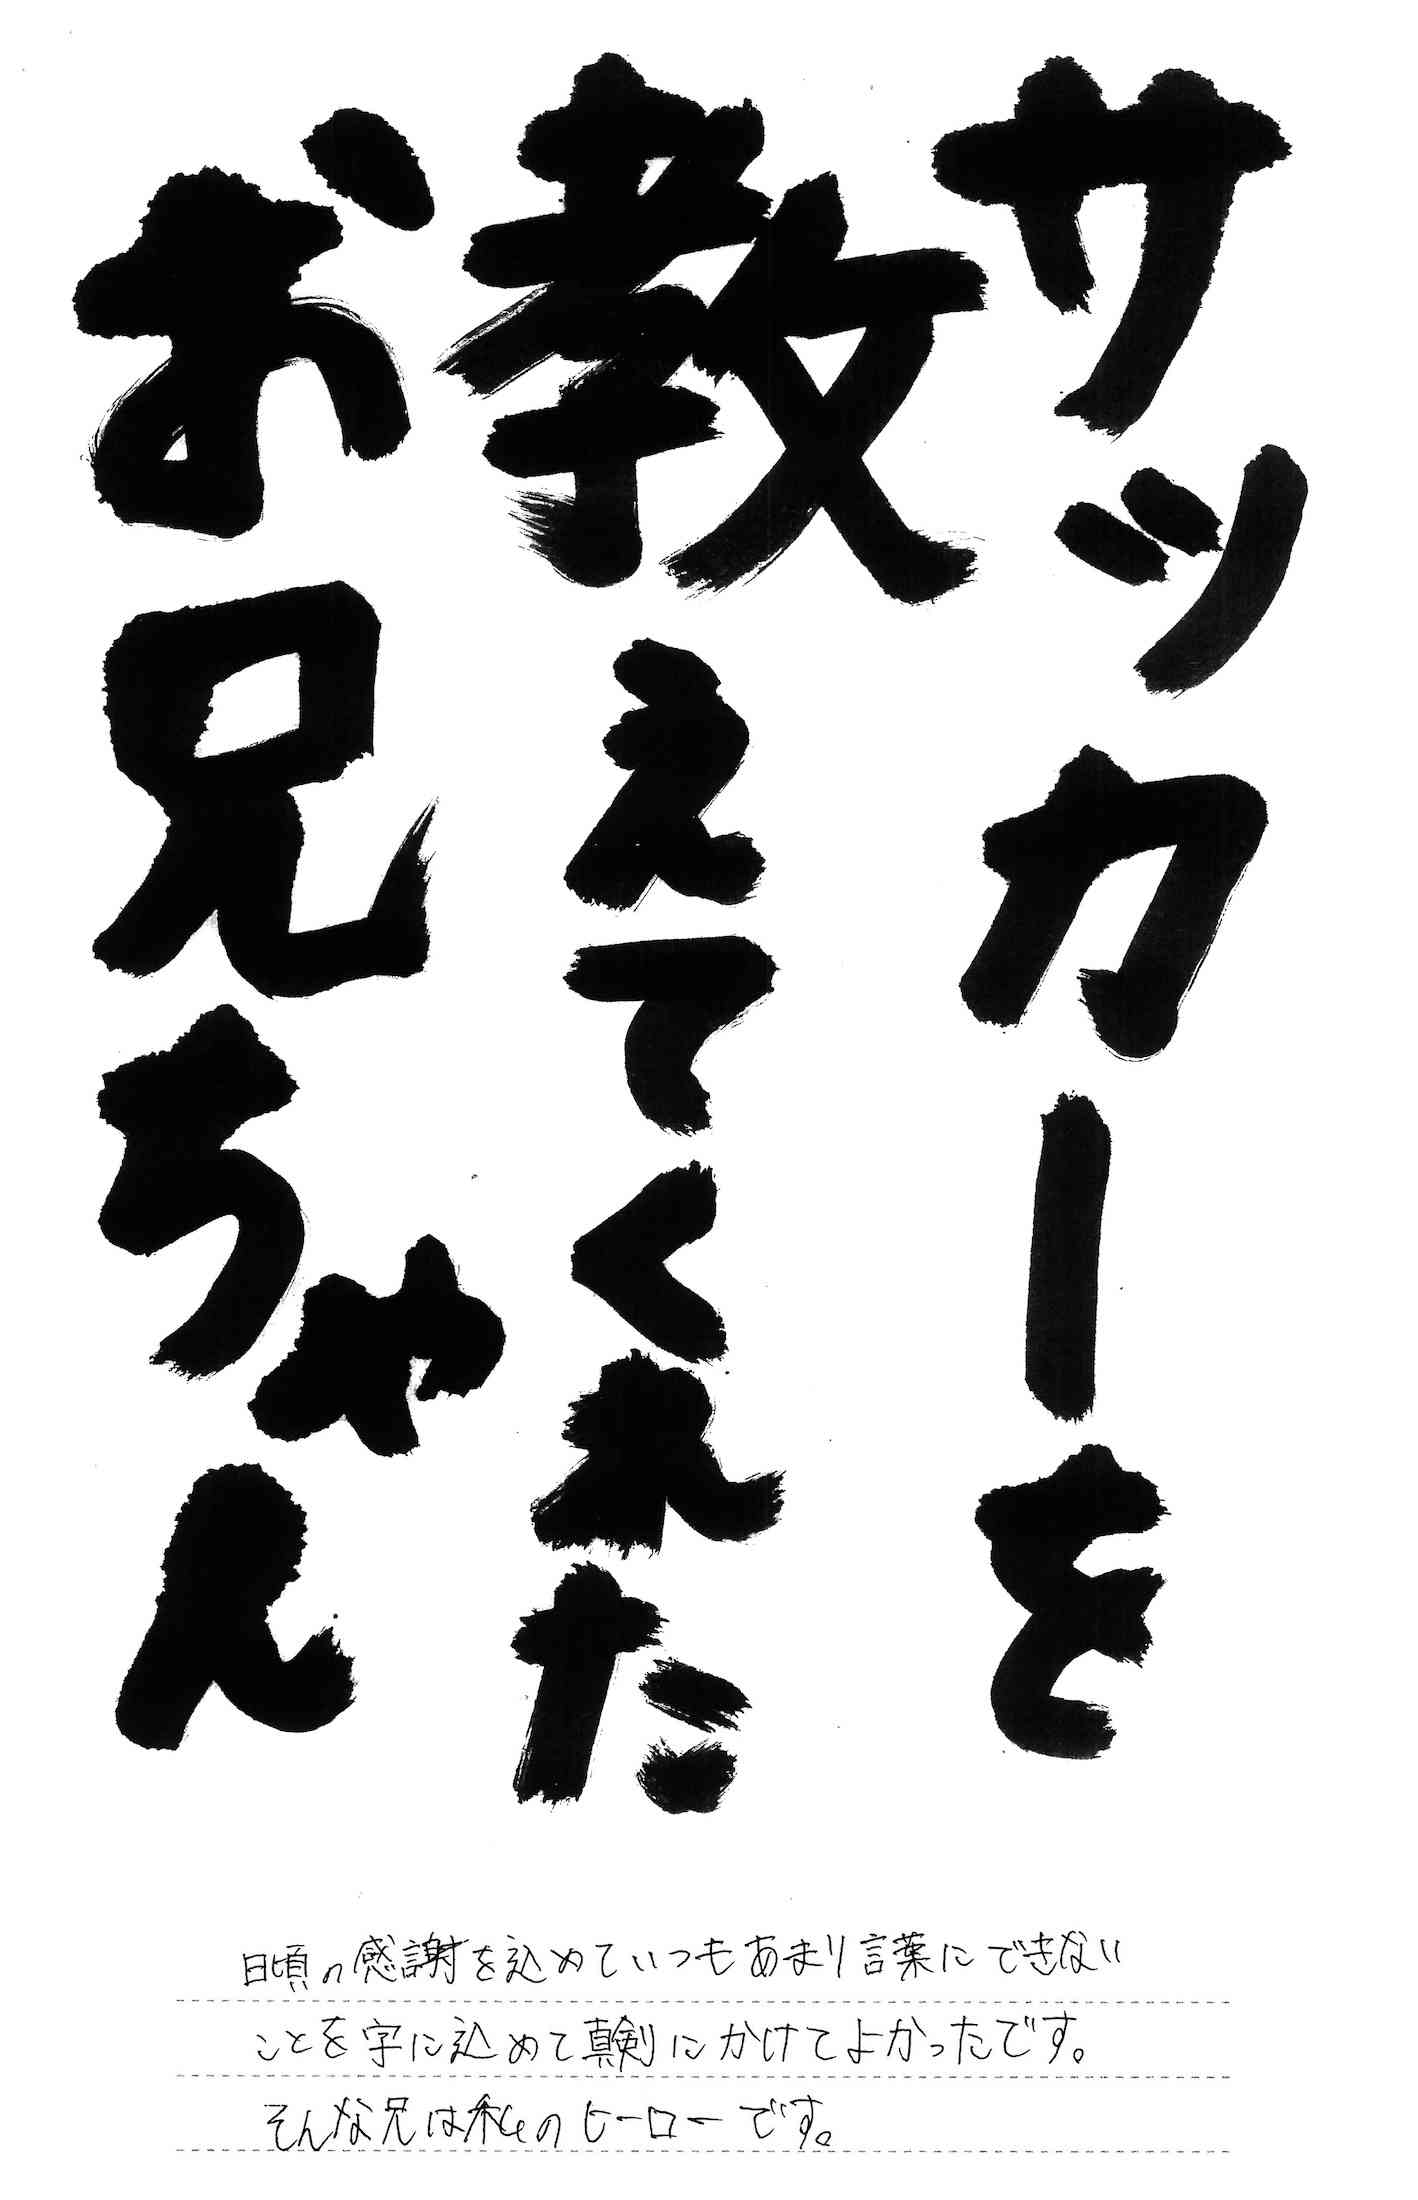 サッカーを
教えてくれた
お兄ちゃん
日頃の感謝を込めていつもあまり言葉にできない
ことを字に込めて真剣にかけてよかったです。
そんな兄は私のヒーローです。